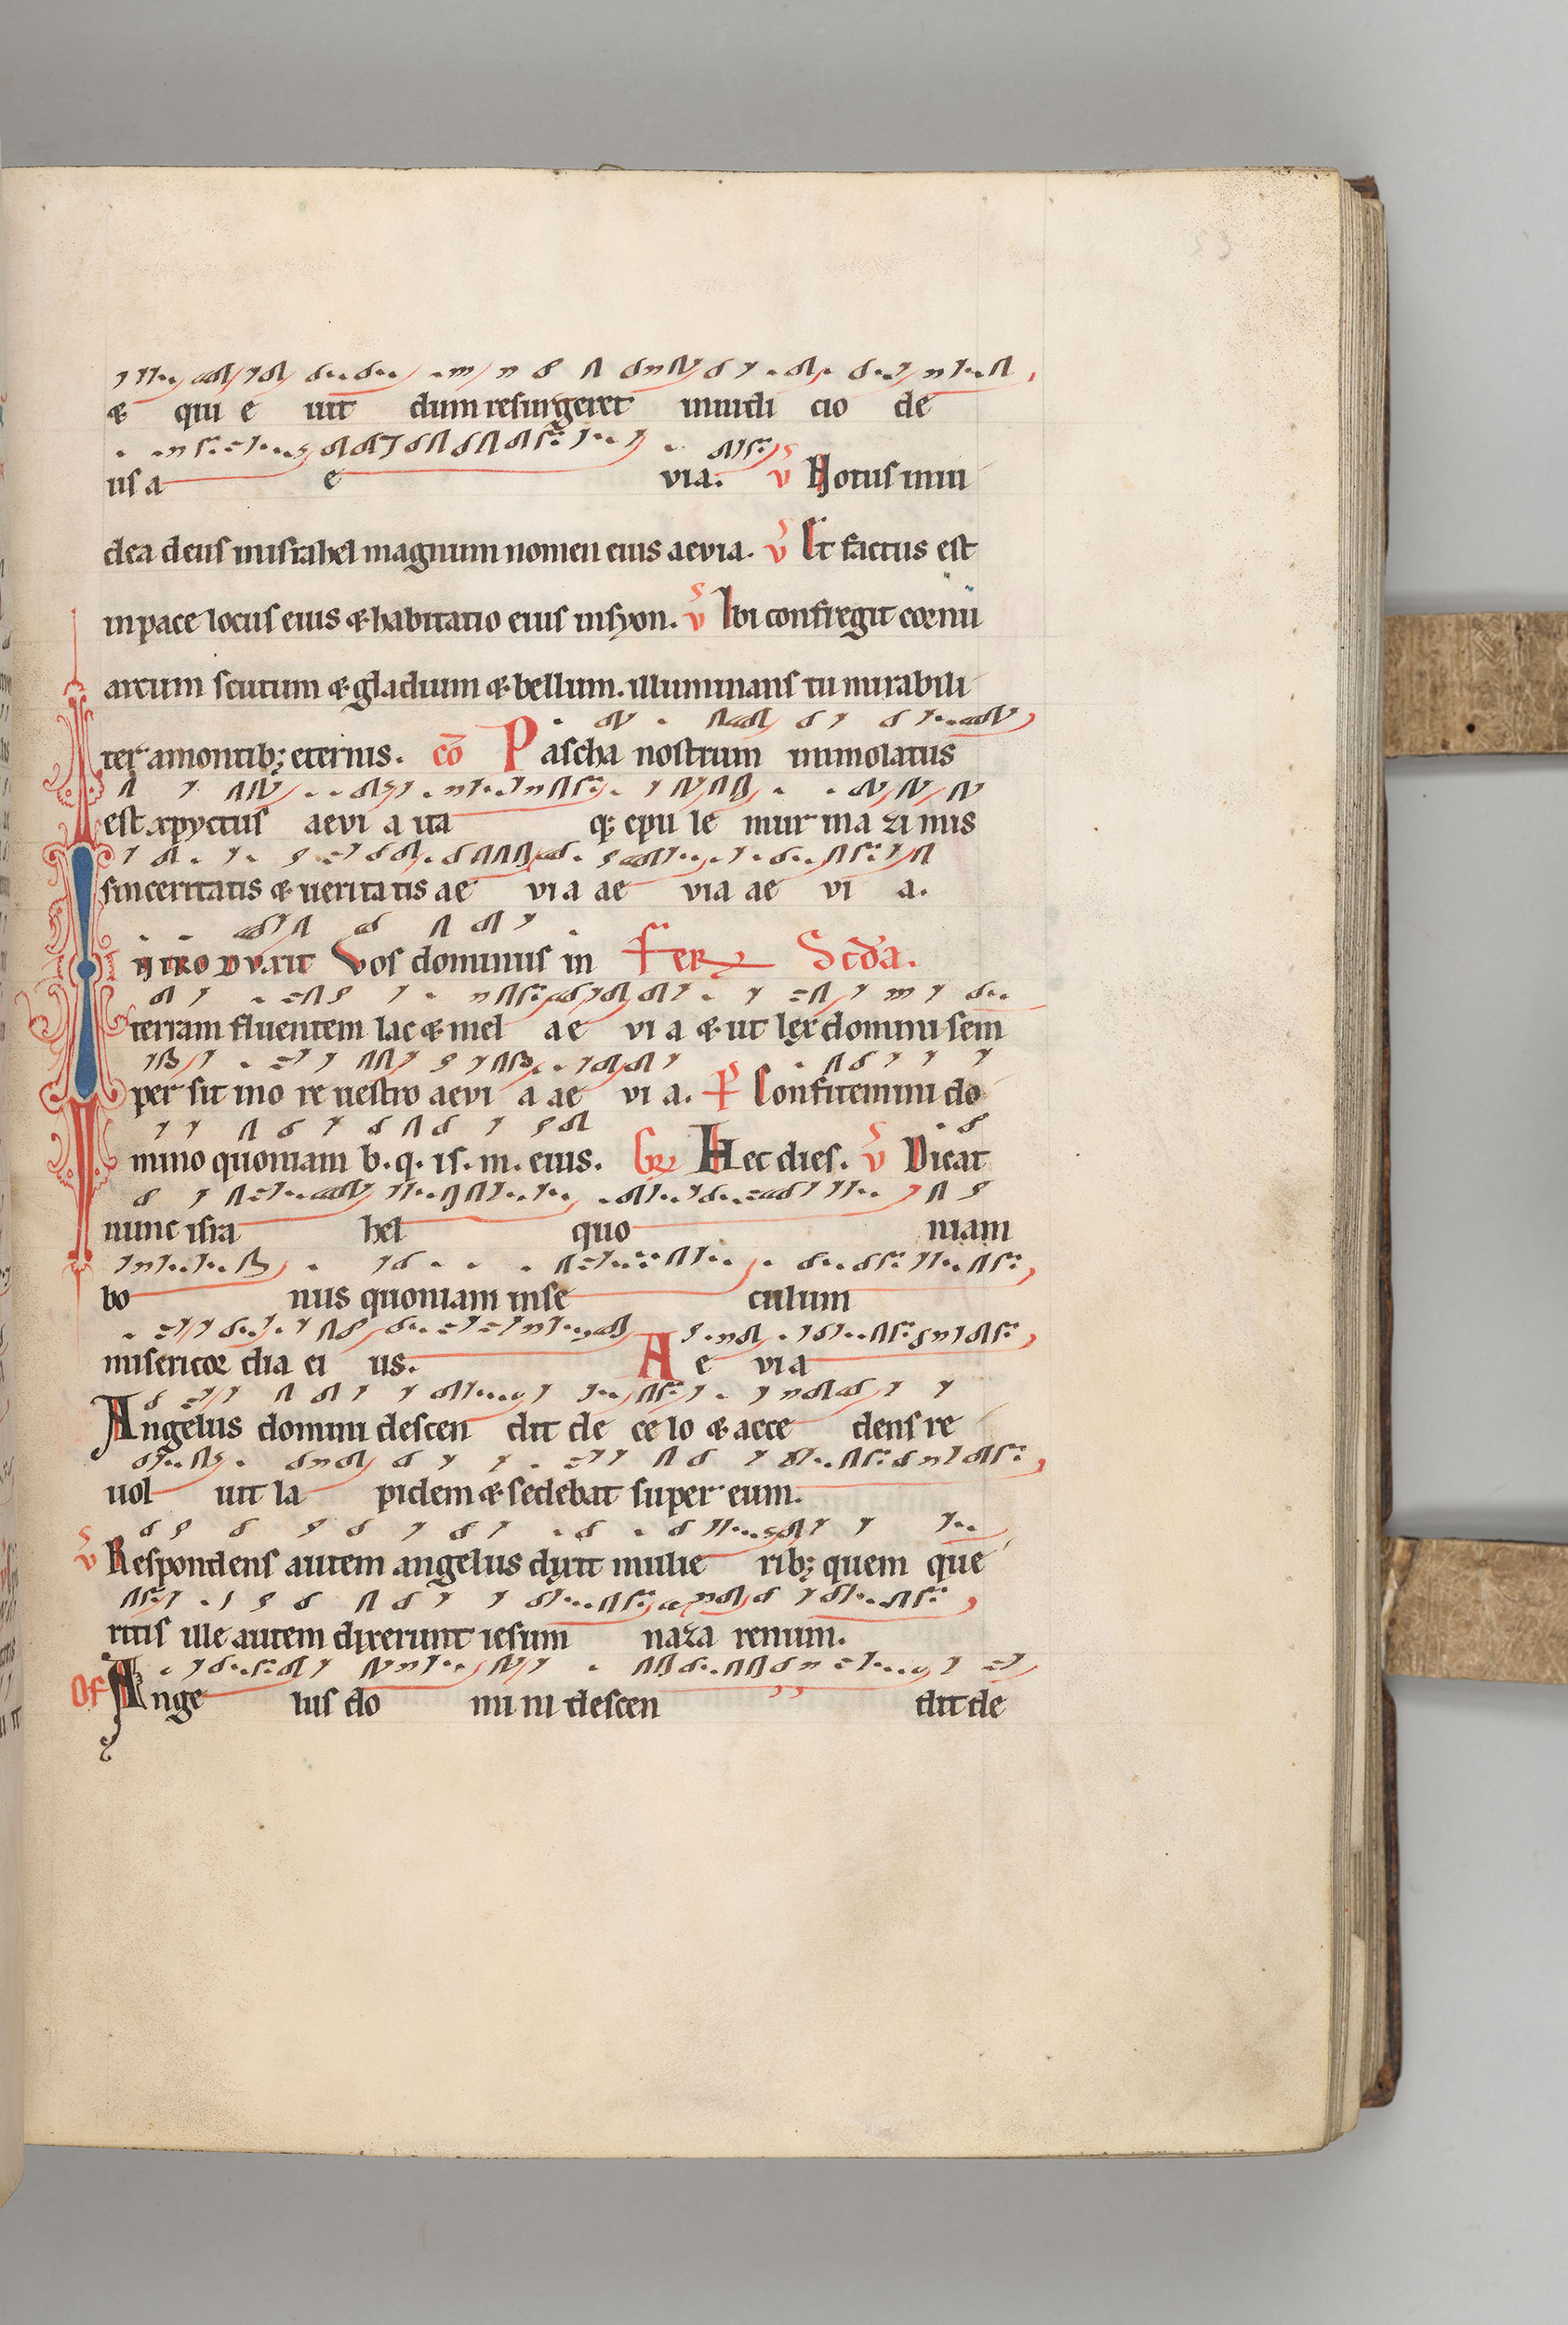 53
& qui e uit dum resurgeret iniudi cio de
us a e via. v̄ Notus in iu
dea deus in israhel magnum nomen eius aevia. v̄ Et factus est
in pace locus eius & habitatio eius in syon. v̄ Ibi confregit cornu
arcum scutum & gladium & bellum. illuminans tu mirabili
ter a montib; eternis. cō Pascha nostrum immolatus
est xpyctus aevi a ita q; epu le mur in a zi mis
sinceritatis & veritatis ae vi a ae via ae vi a.
Introduxit Vos dominus in Fer Scd'a.
terram fluentem lac & mel ae vi a & ut lex domini sem
per sit in o re uestro aevi a ae vi a. P Confitemini do
mino quoniam b. q. is. m. eius. Gr Hec dies. v̄ Dicat
nunc isra hel quo niam
bo nus quoniam in se culum
misericor dia ei us. A e vi a
Angelus domini descen dit de ce lo & acce dens re
uol uit la pidem & sedebat super eum.
v̄ Respondens autem angelus dyxit mulie rib; quem que
ritis ille autem dixerunt iesum naza renum.
Of Ange lus do mi ni descen dit de